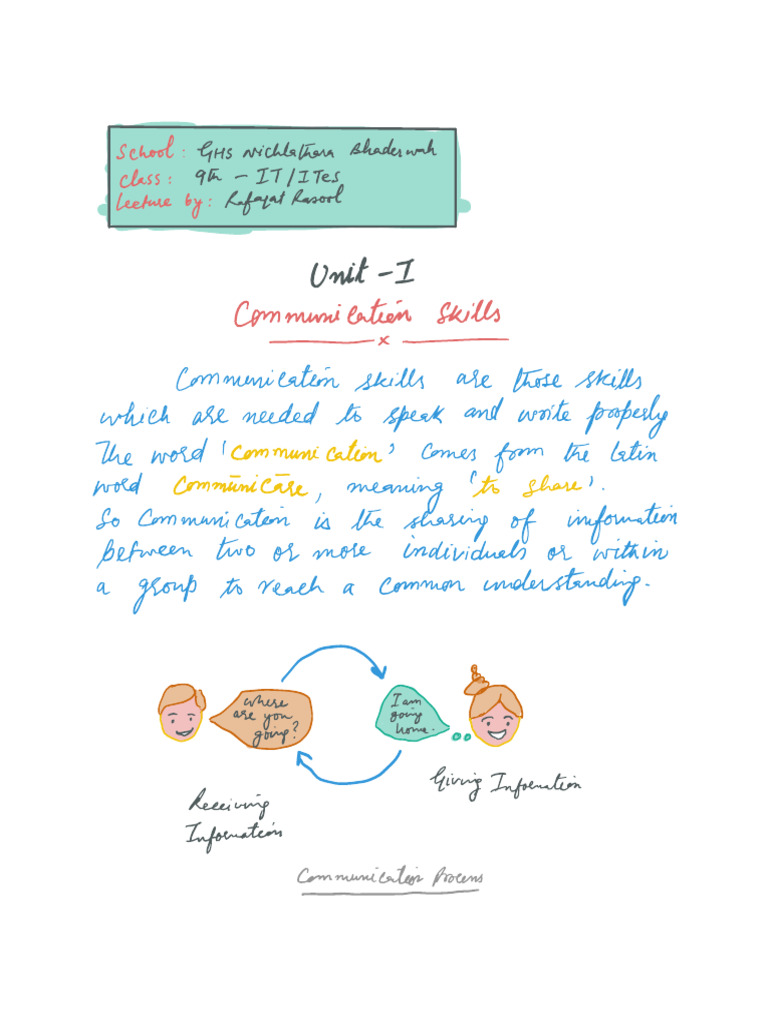 School: GHS Nichlathara Bhaderwah
Class: 9th - IT/ITes
Lecture by: Rafaqat Rasool
Unit - I
Communication Skills
x
Communication skills are those skills
which are needed to speak and write properly
The word 'communication' comes from the latin
word commūnicāre, meaning 'to share'.
So communication is the sharing of information
between two or more individuals or within
a group to reach a common understanding.
Where
are you
going?
I am
going
home.
Giving Information
Receiving
Information
Communication Process